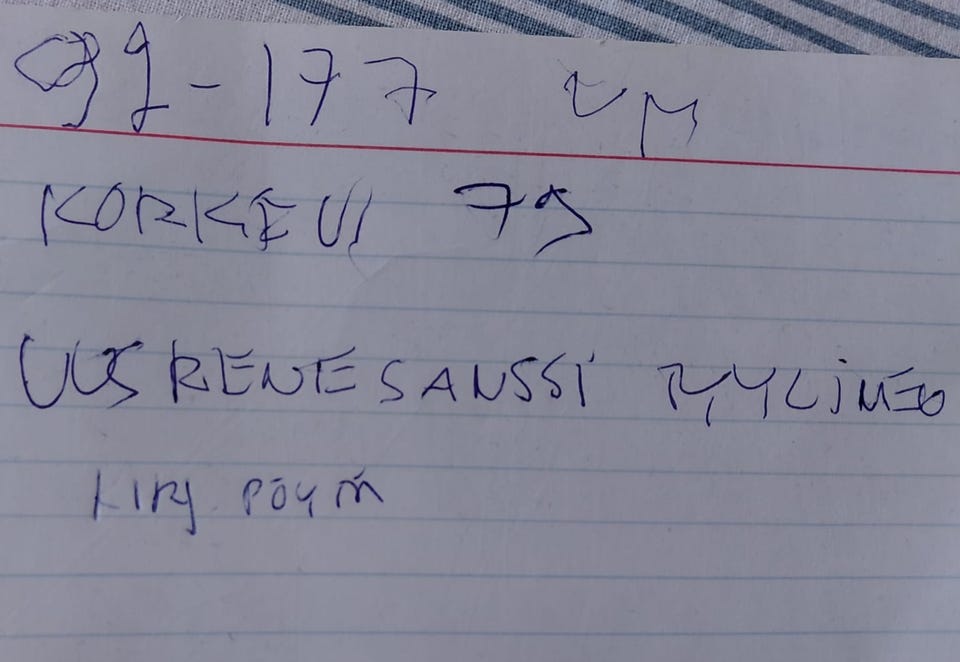 99-177 cm
KORKEUS 79
UUSRENESANSSI TYYLINEN
KIRJ. PÖYTÄ